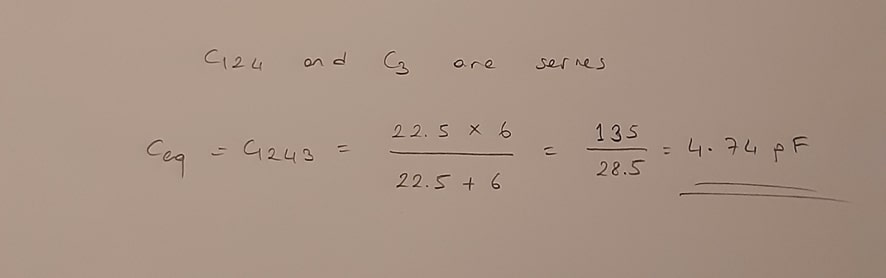 C124 and C3 are series
Ceq = C1243 = 22.5 × 6 / 22.5 + 6 = 135 / 28.5 = 4.74 pF